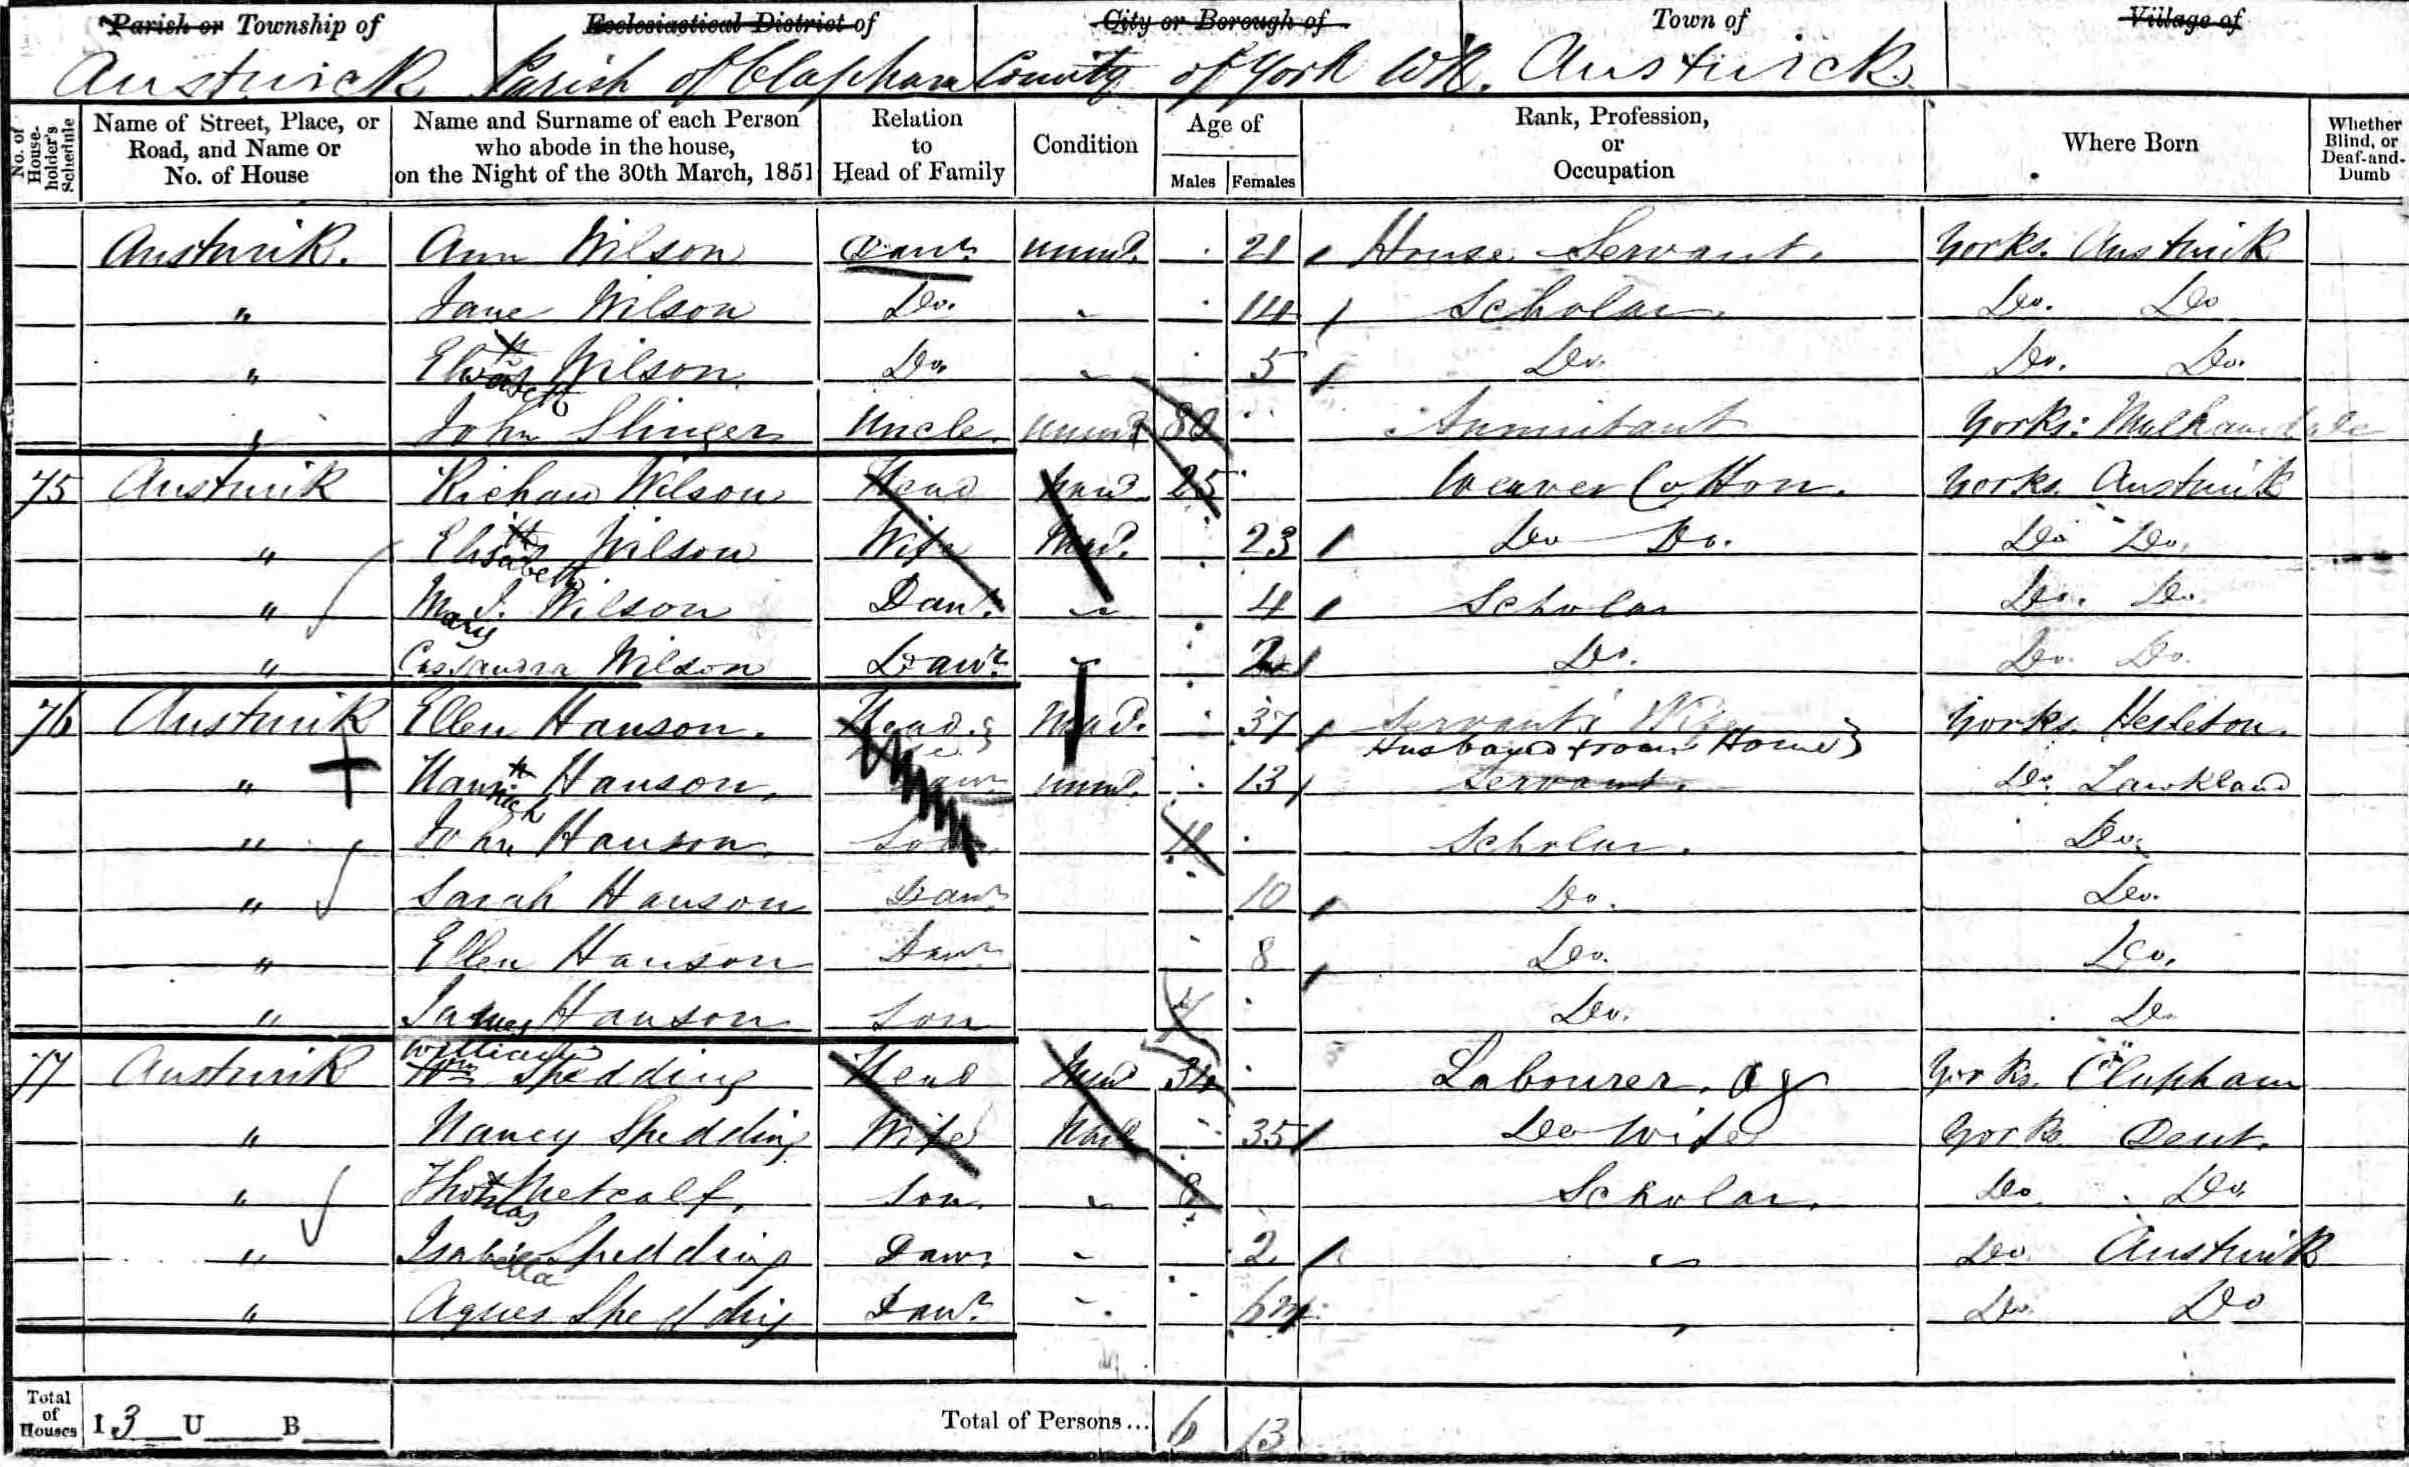 Parish or Township of Ecclesiastical District of City or Borough of Town of Village of
Austwick Parish of Clapham County of York WR. Austwick
No. of House-holder's Schedule Name of Street, Place, or Road, and Name or No. of House Name and Surname of each Person who abode in the house, on the Night of the 30th March, 1851 Relation to Head of Family Condition Age of Males Females Rank, Profession, or Occupation Where Born Whether Blind, or Deaf-and-Dumb
Austwik. Ann Wilson Daur. Unmd. 21 House Servant. Yorks. Austwik
" Jane Wilson Do. 14 Scholar. Do. Do
" Wilson Do. 5 Do. Do. Do.
" John Slinger Uncle. Unmd 80 Annuitant Yorks: Malhamdale
75 Austwik Richard Wilson Head Mard 25 Weaver Cotton. Yorks. Austwik
" Elisabeth Wilson Wife Mard. 23 Do Do. Do Do.
" Mary J. Wilson Daur. 4 Scholar Do. Do.
" Cassandra Wilson Daur. 2 Do. Do. Do.
76 Austwik Ellen Hanson. Head Mard. 37 Servant's Wife Yorks. Hesleton.
Husband from Home}
" Hannah Hanson. Daur Unmd. 13 Servant. Do. Lawkland
" John Hanson. Son 11 Scholar. Do.
" Sarah Hanson Daur. 10 Do. Do.
" Ellen Hanson Daur 8 Do. Do.
" James Hanson Son 4 Do. Do
77 Austwik William Wm Shedding Head Mard 34 Labourer. Ag Yorks. Clapham
" Nancy Shedding Wife Mard 35 Do Wife Yorks Dent.
" Thomas Metcalf. Son. 8 Scholar. Do. Do.
" Isabella Shedding Daur 2 " Do. Austwik
" Agnes Shedding Daur. 6m Do. Do
Total of Houses I 3 U B Total of Persons... 6 13